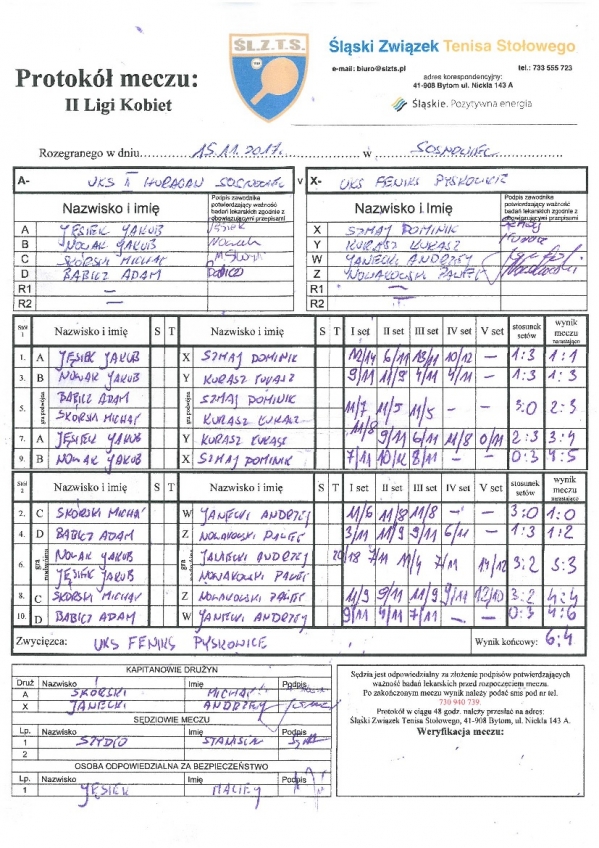 ŚL.Z.T.S.
Śląski Związek Tenisa Stołowego
e-mail: biuro@slzts.pl tel.: 733 555 723
adres korespondencyjny:
41-908 Bytom ul. Nickla 143 A
Śląskie. Pozytywna energia
Protokół meczu:
II Ligi Kobiet
Rozegranego w dniu 15.11.2017. w SOSNOWIEC
A- UKS II HURAGAN SOSNOWIEC v X- UKS FENIKS PYSKOWICE
Nazwisko i imię Podpis zawodnika potwierdzający ważność badań lekarskich zgodnie z obowiązującymi przepisami Nazwisko i Imię Podpis zawodnika potwierdzający ważność badań lekarskich zgodnie z obowiązującymi przepisami
A JĘSIEK JAKUB X SZMAJ DOMINIK
B NOWAK JAKUB Nowak Y KURASZ ŁUKASZ
C SKÓRSKI MICHAŁ W JANECKI ANDRZEJ
D BABICZ ADAM Z NOWAKOWSKI PAWEŁ
R1 — R1 —
R2 — R2 —
Stół 1 Nazwisko i imię S T Nazwisko i imię S T I set II set III set IV set V set stosunek setów wynik meczu narastająco
1. A JĘSIEK JAKUB X SZMAJ DOMINIK 12/14 6/11 13/11 10/12 — 1:3 1:1
3. B NOWAK JAKUB Y KURASZ ŁUKASZ 9/11 11/9 4/11 4/11 — 1:3 1:3
5. gra podwójna BABICZ ADAM SZMAJ DOMINIK 11/7 11/5 11/5 - - 3:0 2:3
SKÓRSKI MICHAŁ KURASZ ŁUKASZ
7. A JĘSIEK JAKUB Y KURASZ ŁUKASZ 11/8 9/11 6/11 11/8 0/11 2:3 3:4
9. B NOWAK JAKUB X SZMAJ DOMINIK 7/11 10/12 8/11 - — 0:3 4:5
Stół 2 Nazwisko i imię S T Nazwisko i imię S T I set II set III set IV set V set stosunek setów wynik meczu narastająco
2. C SKÓRSKI MICHAŁ W JANECKI ANDRZEJ 11/6 11/8 11/8 — — 3:0 1:0
4. D BABICZ ADAM Z NOWAKOWSKI PAWEŁ 3/11 11/9 9/11 6/11 — 1:3 1:2
6. NOWAK JAKUB JANECKI ANDRZEJ 20/18 7/11 11/4 7/11 14/12 3:2 3:3
JĘSIEK JAKUB NOWAKOWSKI PAWEŁ
8. C SKÓRSKI MICHAŁ Z NOWAKOWSKI PAWEŁ 11/9 9/11 11/9 9/11 12/10 3:2 4:4
10. D BABICZ ADAM W JANECKI ANDRZEJ 9/11 4/11 7/11 - — 0:3 4:6
Zwycięzca: UKS FENIKS PYSKOWICE Wynik końcowy: 6:4
KAPITANOWIE DRUŻYN
Druż Nazwisko Imię Podpis
A SKÓRSKI MICHAŁ
X JANECKI ANDRZEJ
SĘDZIOWIE MECZU
Lp. Nazwisko Imię Podpis
1 SZYDŁO STANISŁAW
2
OSOBA ODPOWIEDZIALNA ZA BEZPIECZEŃSTWO
Lp. Nazwisko Imię Podpis
1 JĘSIEK MACIEJ
Sędzia jest odpowiedzialny za złożenie podpisów potwierdzających
ważność badań lekarskich przed rozpoczęciem meczu.
Po zakończonym meczu wynik należy podać smś pod nr tel.
730 940 739.
Protokół w ciągu 48 godz. należy przesłać na adres:
Śląski Związek Tenisa Stołowego, 41-908 Bytom, ul. Nickla 143 A.
Weryfikacja meczu: